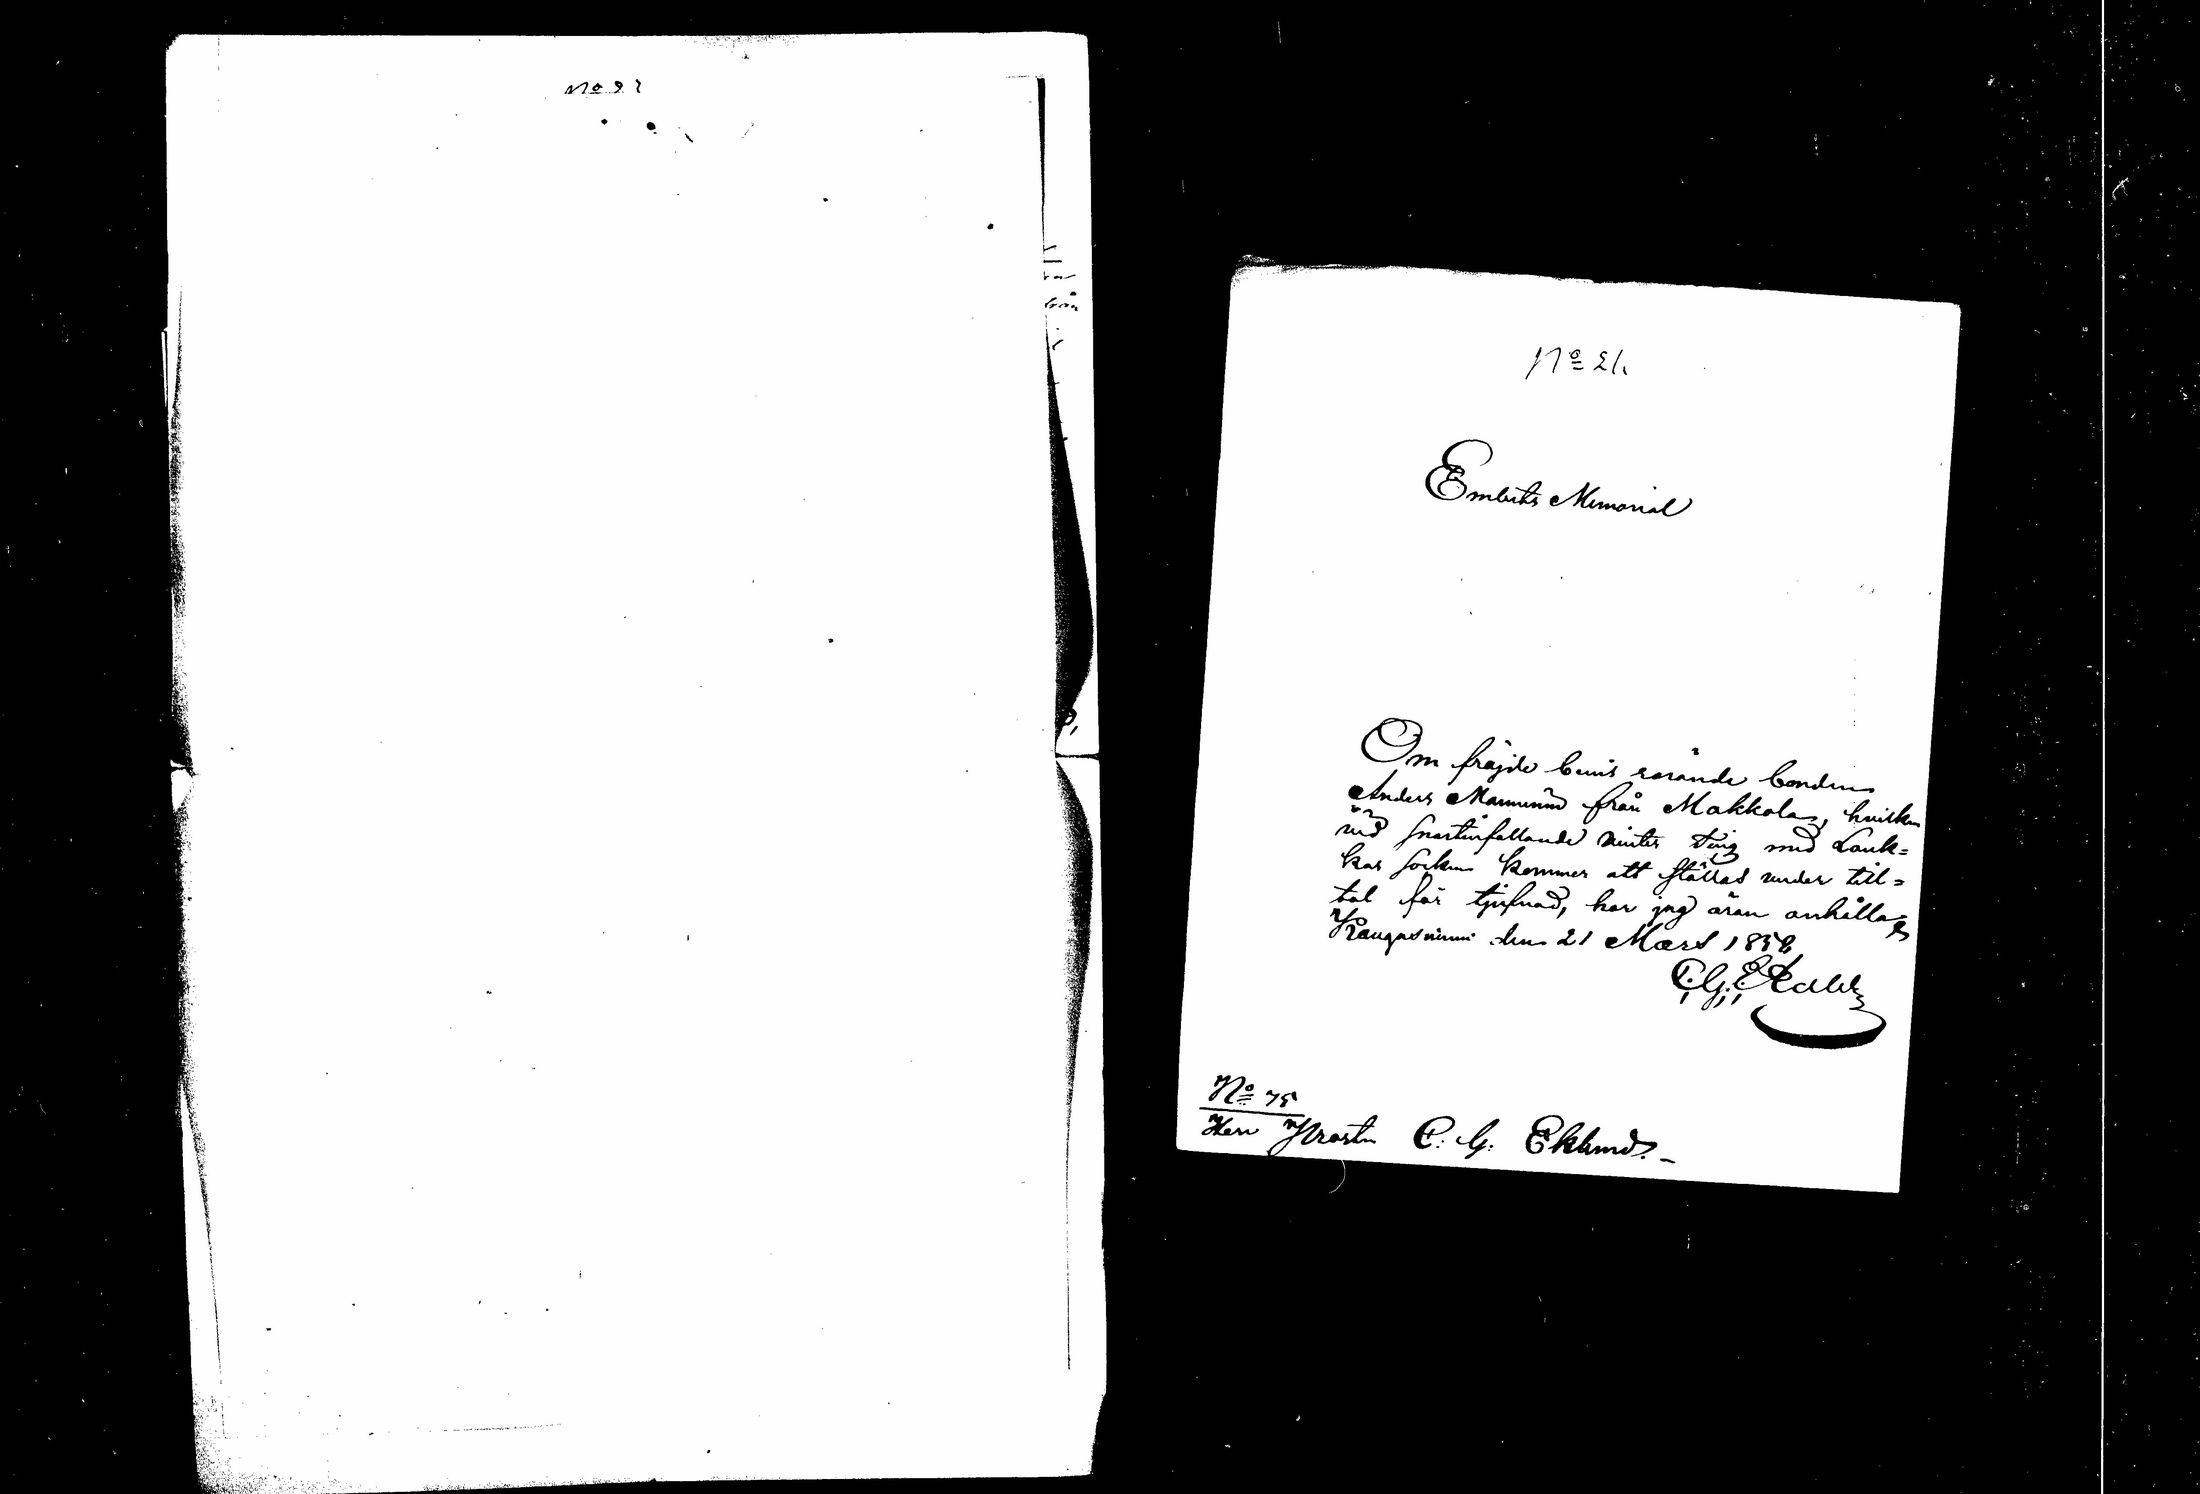 No 92
No 21.
Embets Memorial
Om fräjde bevis rörande bonden
Anders Manninen från Makkola, hvilken
vid snartinfallande vinter Ting med Lauk=
kas socken kommer att ställas under till=
tal för tjufnad, har jag äran anhålla
Kangasniemi den 21 Mars 1858
C. G.
No 75
Herr Prosten C. G. Eklund.